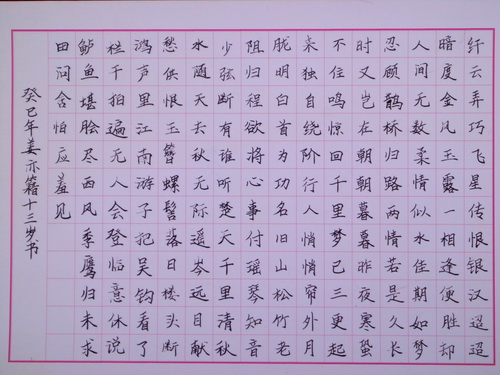 纤云弄巧飞星传恨银汉迢迢
暗度金风玉露一相逢便胜却
人间无数柔情似水佳期如梦
忍顾鹊桥归路两情若是久长
时又岂在朝朝暮暮昨夜寒蛩
不住鸣惊回千里梦已三更起
来独自绕阶行人悄悄帘外月
胧明白首为功名旧山松竹老
阻归程欲将心事付瑶琴知音
少弦断有谁听楚天千里清秋
水随天去秋无际遥岑远目献
愁供恨玉簪螺髻落日楼头断
鸿声里江南游子把吴钩看了
栏干拍遍无人会登临意休说
鲈鱼堪脍尽西风季鹰归未求
田问舍怕应羞见
癸巳年姜亦籍十三岁书